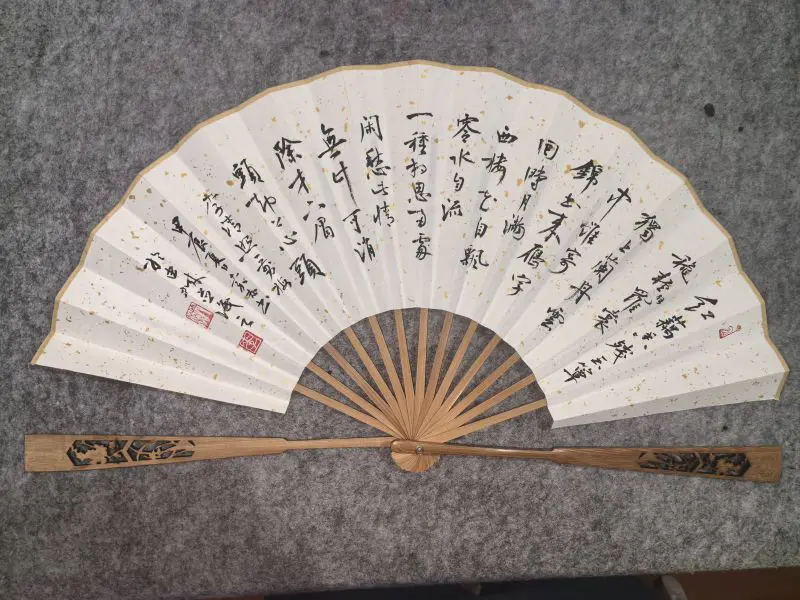 紅藕香残玉簟
秋輕解羅裳
獨上蘭舟雲
中誰寄
錦書來雁字
回時月滿
西樓花自飄
零水自流
一種相思兩處
閑愁此情
無计可消
除才下眉
頭却上心頭
李清照一剪梅